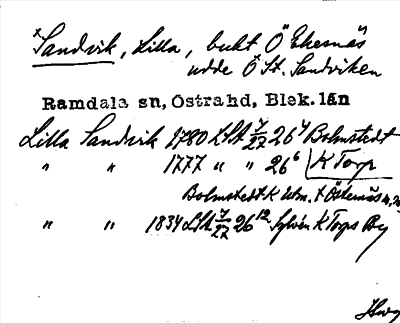 *Sandvik, Lilla, bukt Ö Ekenäs
udde Ö St. Sandviken
Ramdala sn, Östra hd, Blek. län
Lilla Sandvik 1780 LSA 7/27 26⁴ Bolmstedt
" " 1777 " " 26⁶ K Torp
Bolmstedt K Utm. t Östenäs
" " 1834 LSA 7/27 26¹² Sylvén K Torps By